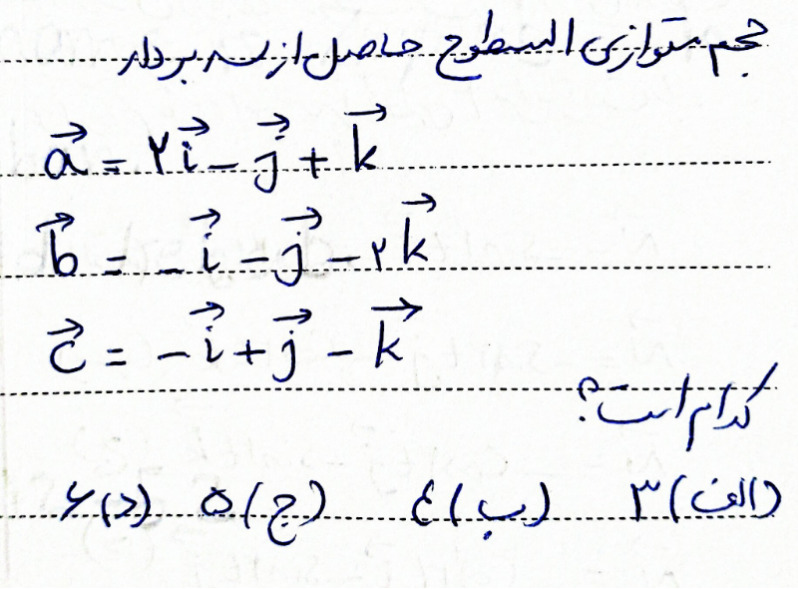 حجم متوازی السطوح حاصل از سه بردار
a⃗ = ۲i⃗ - j⃗ + k⃗
b⃗ = -i⃗ - j⃗ - ۲k⃗
c⃗ = -i⃗ + j⃗ - k⃗
کدام است؟
الف) ۳ ب) ٤ ج) ۵ د) ۶